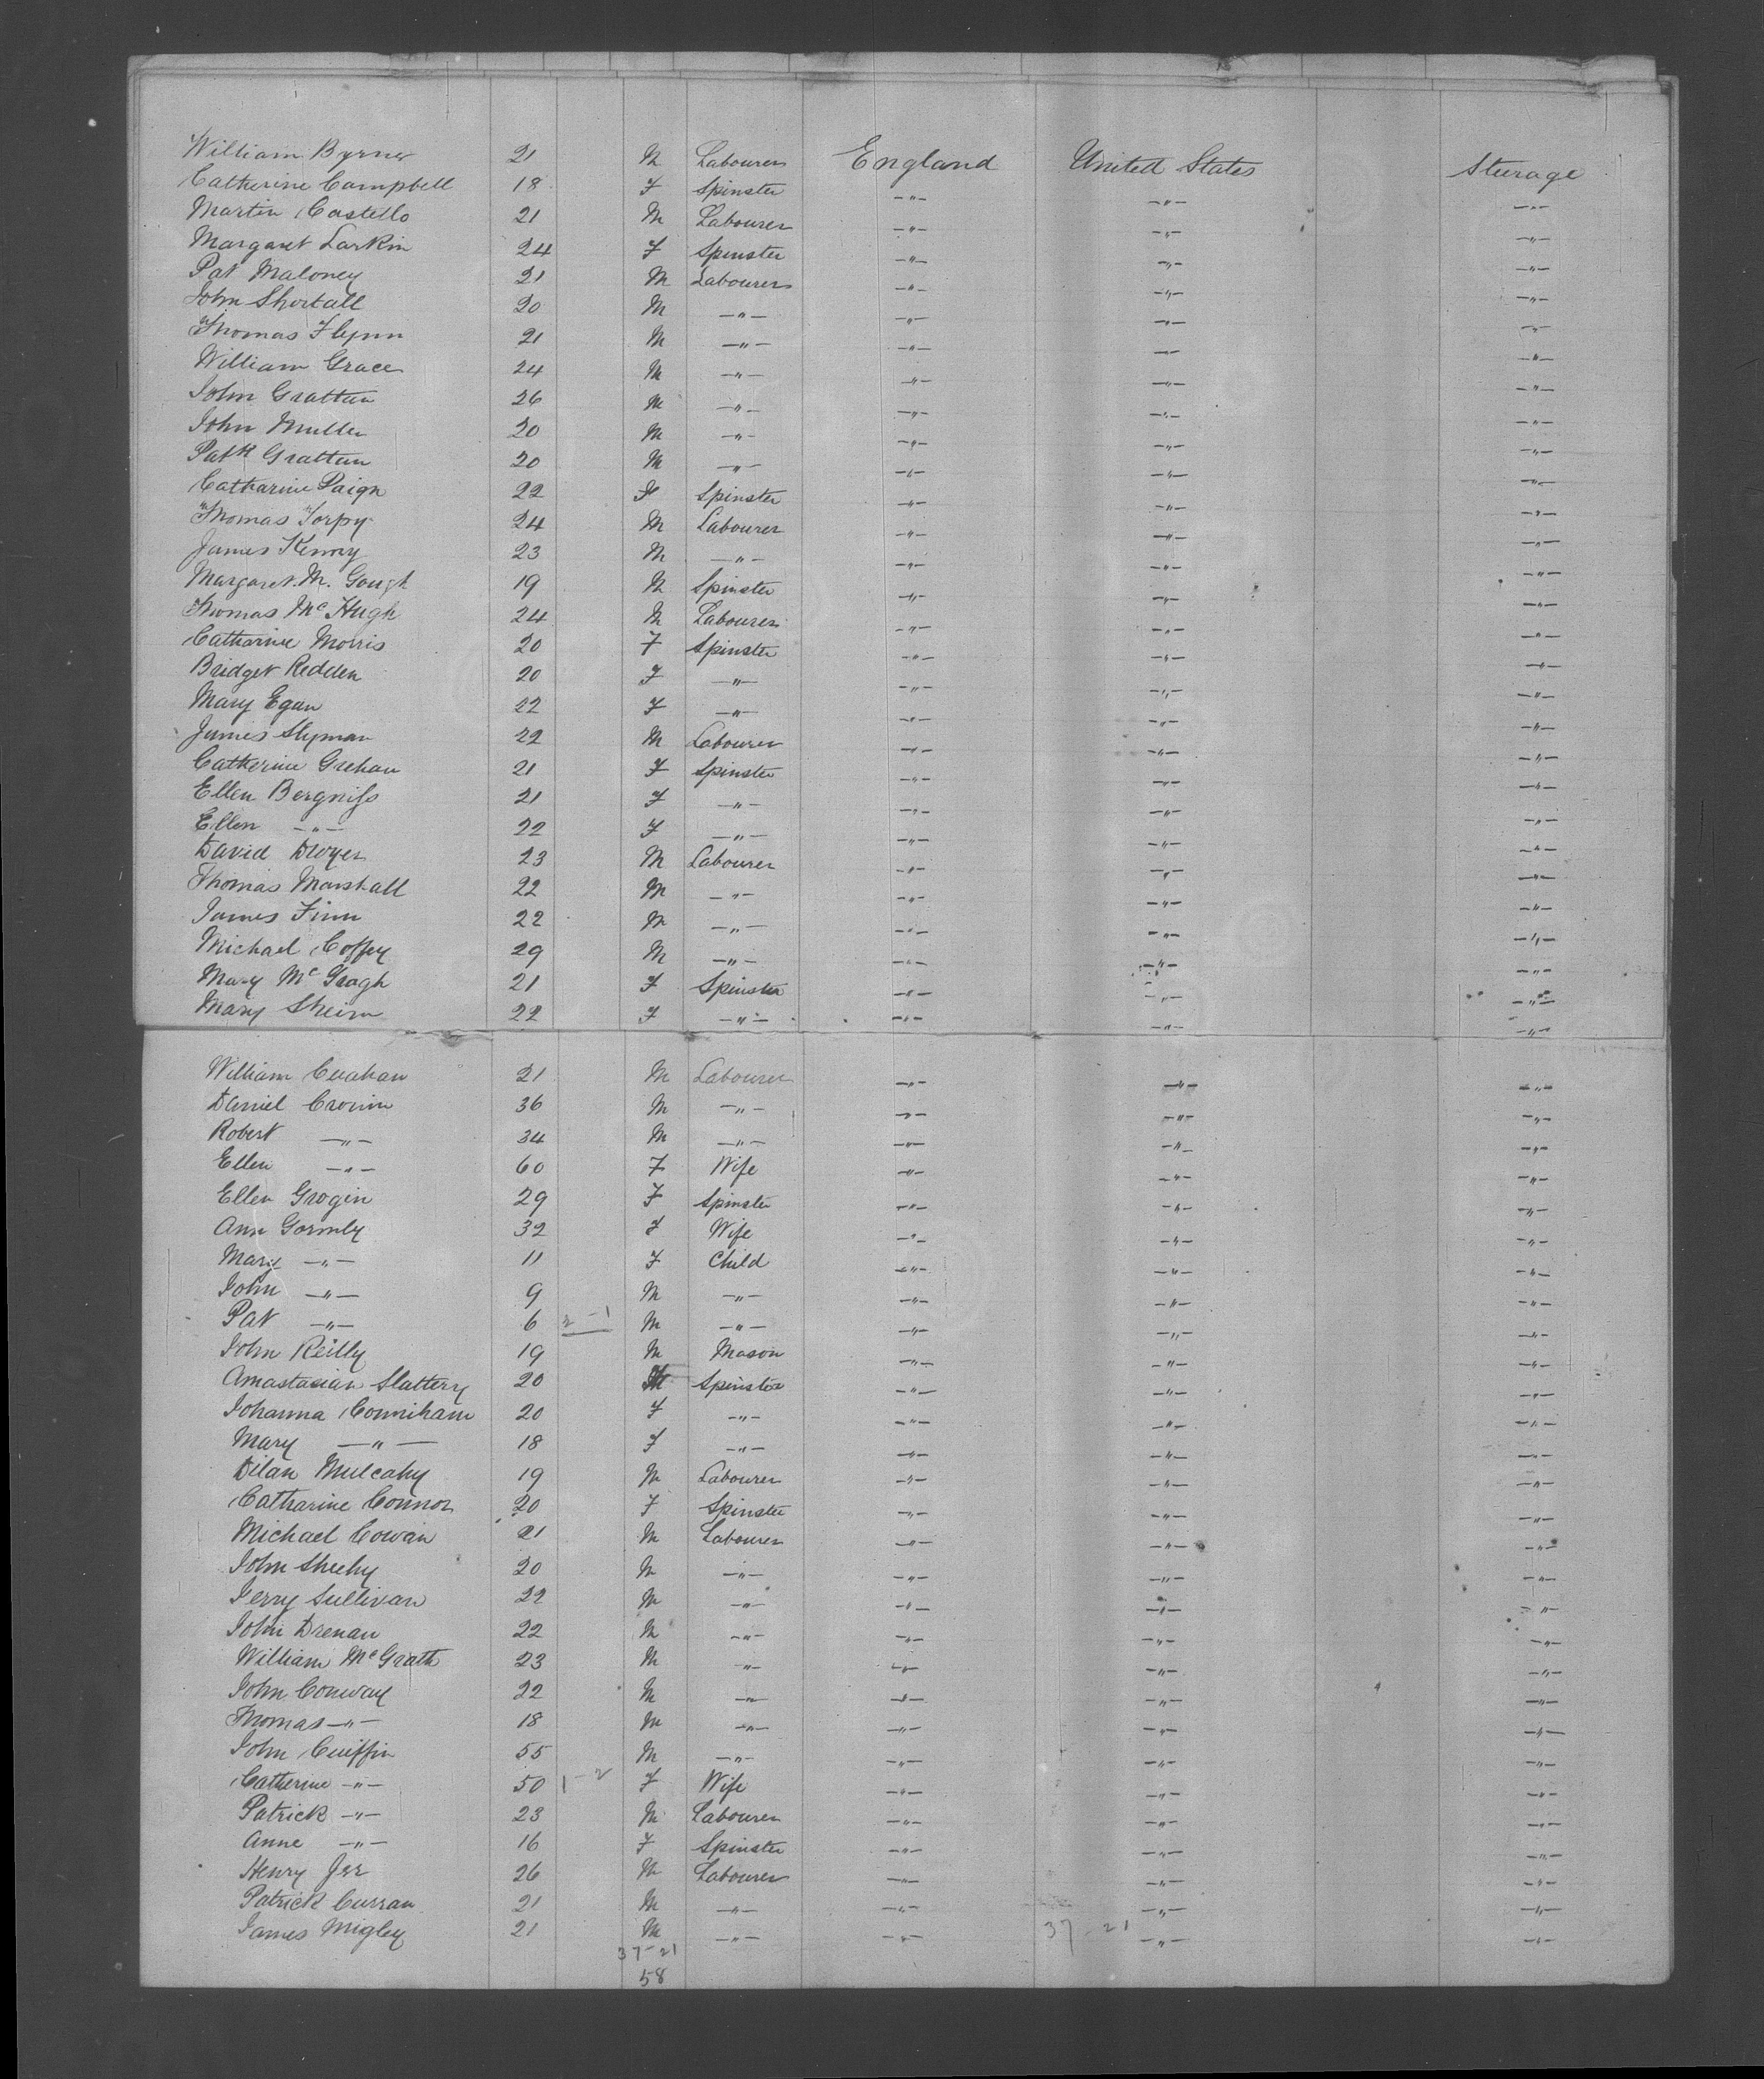 William Byrnes 21 M Labourer England United States Steerage
Catherine Campbell 18 F Spinster -"- -"- -"-
Martin Costello 21 M Labourer -"- -"- -"-
Margaret Larkin 24 F Spinster -"- -"- -"-
Pat Maloney 21 M Labourer -"- -"- -"-
John Shortall 20 M -"- -"- -"- -"-
Thomas Flynn 21 M -"- -"- -"- -"-
William Grace 24 M -"- -"- -"- -"-
John Grattan 26 M -"- -"- -"- -"-
John Muller 20 M -"- -"- -"- -"-
Patk Grattan 20 M -"- -"- -"- -"-
Catharine Paign 22 F Spinster -"- -"- -"-
Thomas Torpy 24 M Labourer -"- -"- -"-
James Kenny 23 M -"- -"- -"- -"-
Margaret M. Gough 19 M Spinster -"- -"- -"-
Thomas McHugh 24 M Labourer -"- -"- -"-
Catharine Morris 20 F Spinster -"- -"- -"-
Bridget Redden 20 F -"- -"- -"- -"-
Mary Egan 22 F -"- -"- -"- -"-
James Slyman 22 M Labourer -"- -"- -"-
Catherine Grehan 21 F Spinster -"- -"- -"-
Ellen Bergniss 21 F -"- -"- -"- -"-
Ellen -"- 22 F -"- -"- -"- -"-
David Dwyer 23 M Labourer -"- -"- -"-
Thomas Marshall 22 M -"- -"- -"- -"-
James Finn 22 M -"- -"- -"- -"-
Michael Coffey 29 M -"- -"- -"- -"-
Mary McGragh 21 F Spinster -"- -"- -"-
Mary Sheirn 22 F -"- -"- -"- -"-
William 21 M Labourer -"- -"- -"-
Daniel Cronin 36 M -"- -"- -"- -"-
Robert -"- 34 M -"- -"- -"- -"-
Ellen -"- 60 F Wife -"- -"- -"-
Ellen Grogin 29 F Spinster -"- -"- -"-
Ann Gormly 32 F Wife -"- -"- -"-
Mary -"- 11 F Child -"- -"- -"-
John -"- 9 M -"- -"- -"- -"-
Pat -"- 6 2-1 M -"- -"- -"- -"-
John Reilly 19 M Mason -"- -"- -"-
Amastasian Slattery 20 Spinster -"- -"- -"-
Johanna Connihane 20 F -"- -"- -"- -"-
Mary -"- 18 F -"- -"- -"- -"-
Dilan Mulcahy 19 M Labourer -"- -"- -"-
Catharine Connor 20 F Spinster -"- -"- -"-
Michael Cowan 21 M Labourer -"- -"- -"-
John Sheehy 20 M -"- -"- -"- -"-
Jerry Sullivan 22 M -"- -"- -"- -"-
John Drenan 22 M -"- -"- -"- -"-
William McGrath 23 M -"- -"- -"- -"-
John Conway 22 M -"- -"- -"- -"-
Thomas -"- 18 M -"- -"- -"- -"-
John Cuiffin 55 M -"- -"- -"- -"-
Catherine -"- 50 1-2 F Wife -"- -"- -"-
Patrick -"- 23 M Labourer -"- -"- -"-
Anne -"- 16 F Spinster -"- -"- -"-
Henry 26 M Labourer -"- -"- -"-
Patrick Curran 21 M -"- -"- -"- -"-
James Migley 21 M -"- -"- -"- -"-
37-21 37-21
58